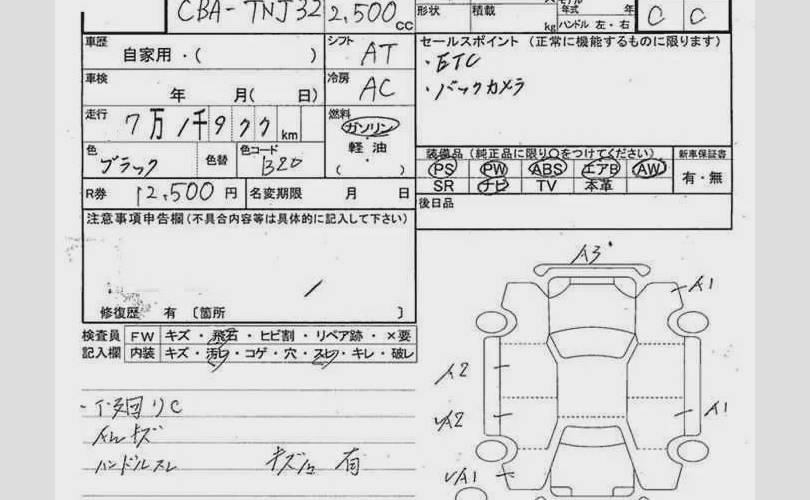 CBA-TNJ32 2,500 CC 形状 積載 kg 年式 年 ハンドル 左・右 C C
車歴 自家用・( ) シフト AT セールスポイント (正常に機能するものに限ります)
・ETC
車検 年 月( 日) 冷房 AC ・バックカメラ
走行 7万1千9 km 燃料 ガソリン・軽油・( )
色 ブラック 色替 色コード B20 装備品 (純正品に限り〇をつけてください) 新車保証書
PS PW ABS エアB AW 有・無
SR ナビ TV 本革
R券 12,500 円 名変期限 月 日 後日品
注意事項申告欄 (不具合内容等は具体的に記入して下さい)
修復歴 有 〔箇所 〕
検査員 FW キズ・飛石・ヒビ割・リペア跡・×要
記入欄 内装 キズ・汚れ・コゲ・穴・スレ・キレ・破レ
A3
A1
A2
A2
A1
A1
ハンドルスレ
有